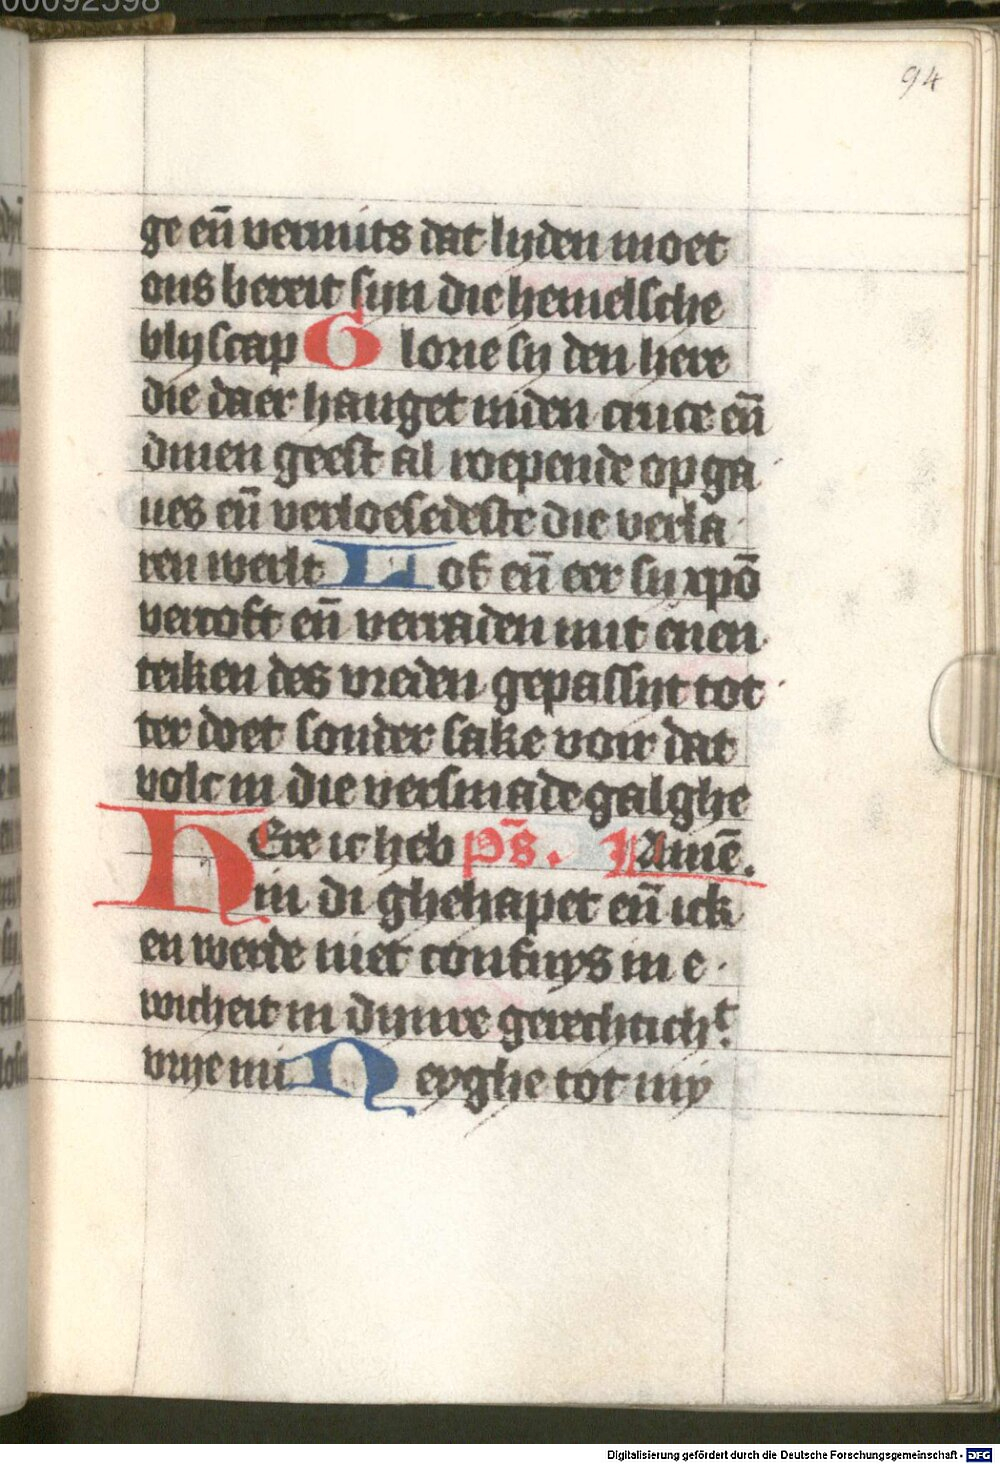 00092598
94
ge en̄ vermits dat lyden moet
ons bereit sijn die hemelsche
blijscap Glorie sy den here
die daer hanget inden cruce en̄
dinen geest al roepende op ga
ues en̄ verloesedeste die verla
ren werlt Lof en̄ eer sy xpō
vercoft en̄ verraden mit enen
teiken des vreden gepassijt tot
ter doet sonder sake voir dat
volc in die versmade galghe
HEre ic heb ps̄. Amē.
in di ghehapet en̄ ick
en werde niet confuys in e
wicheit in dynre gerechtichᵗ
vrye mi Neyghe tot my
Digitalisierung gefördert durch die Deutsche Forschungsgemeinschaft - DFG